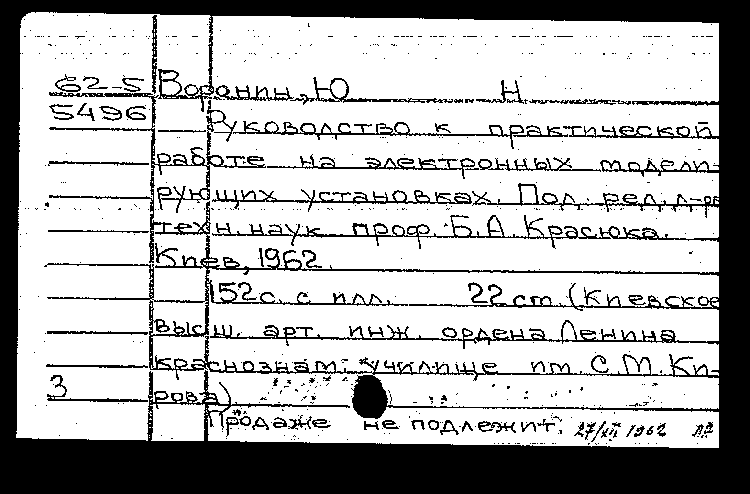 62-5 Воронин, Ю Н
5496
Руководство к практической
работе на электронных модели-
рующих установках. Под. ред. д-ра
техн. наук проф. Б.А. Красюка.
Киев, 1962.
152 с. с илл. 22 cm. (Киевское
высш. арт. инж. ордена Ленина
краснознам. училище им С.М. Ки-
3 рова)
Продаже не подлежит. 27/XII 1962